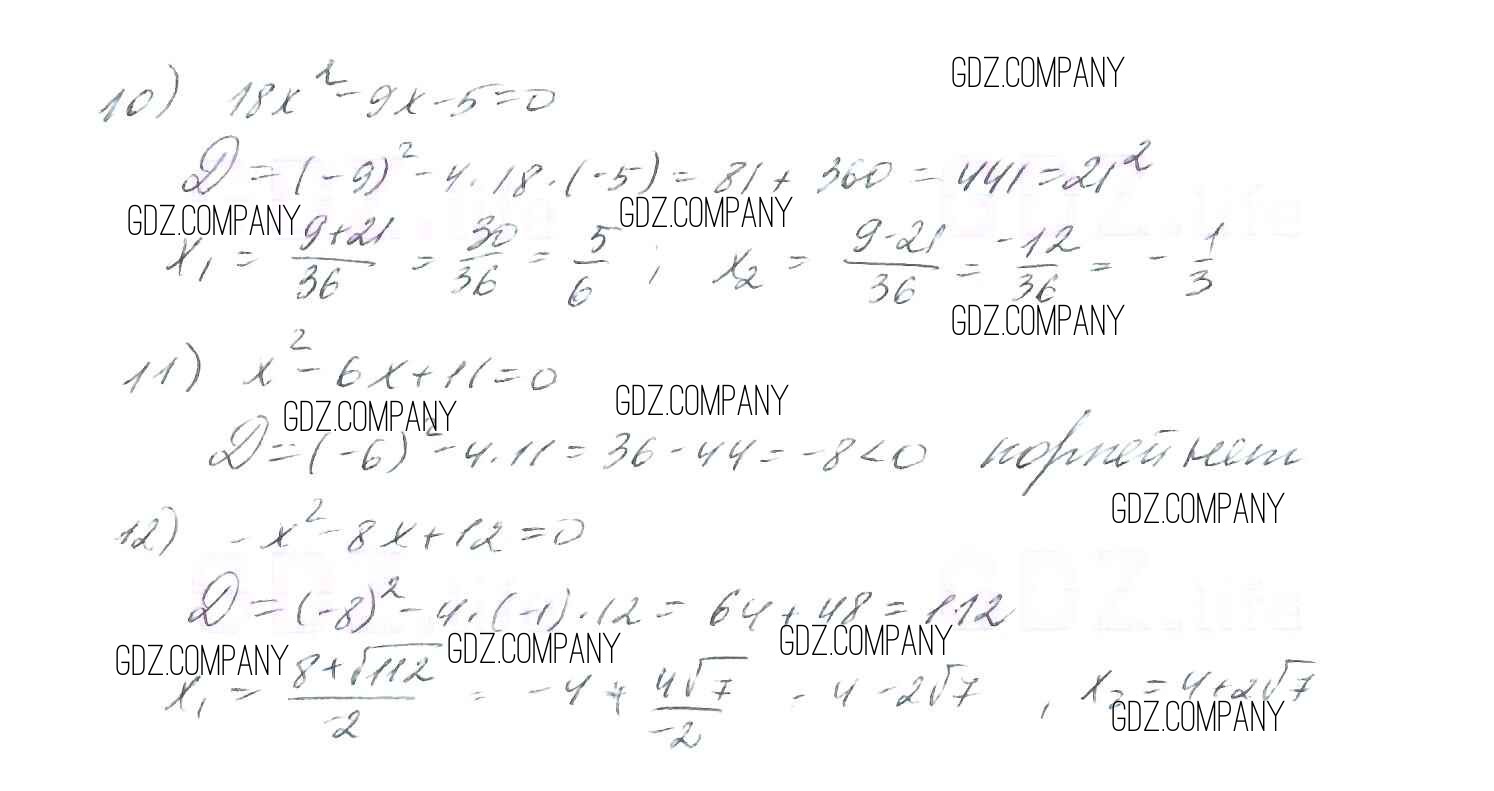 GDZ.COMPANY
10) 18x² - 9x - 5 = 0
D = (-9)² - 4 · 18 · (-5) = 81 + 360 = 441 = 21²
GDZ.COMPANY GDZ.COMPANY
x₁ = (9+21)/36 = 30/36 = 5/6 ; x₂ = (9-21)/36 = -12/36 = -1/3
GDZ.COMPANY
11) x² - 6x + 11 = 0
GDZ.COMPANY GDZ.COMPANY
D = (-6)² - 4 · 11 = 36 - 44 = -8 < 0 корней нет
GDZ.COMPANY
12) -x² - 8x + 12 = 0
D = (-8)² - 4 · (-1) · 12 = 64 + 48 = 112
GDZ.COMPANY GDZ.COMPANY GDZ.COMPANY
x₁ = (8+√112)/-2 = -4 + 4√7/-2 - 4 - 2√7 , x₂ = 4 + 2√7
GDZ.COMPANY